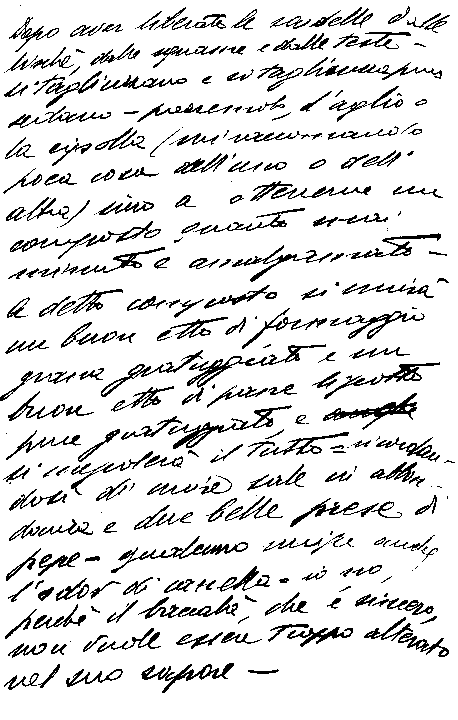 Dopo aver liberato le sardelle dalle
lische, dalle squamme e dalle teste -
si tagliuzzano e si tagliuzza pure
sedano - prezzemolo, l'aglio o
la cipolla (mi raccomando
poca cosa dell'uno o dell'
altra) sino a ottenerne un
composto quanto mai
minuto e amalgamato -
A detto composto si unirà
un buon etto di formaggio
grana grattuggiato e un
buon etto di pane
pure grattuggiato, e
si mescolerà il tutto - ricordan-
dosi di unire sale in abbon-
danza e due belle prese di
pepe - qualcuno unisce anche
l'odor di canella - io no,
perchè il baccalà, che è sincero,
non vuole esser troppo alterato
nel suo sapore -